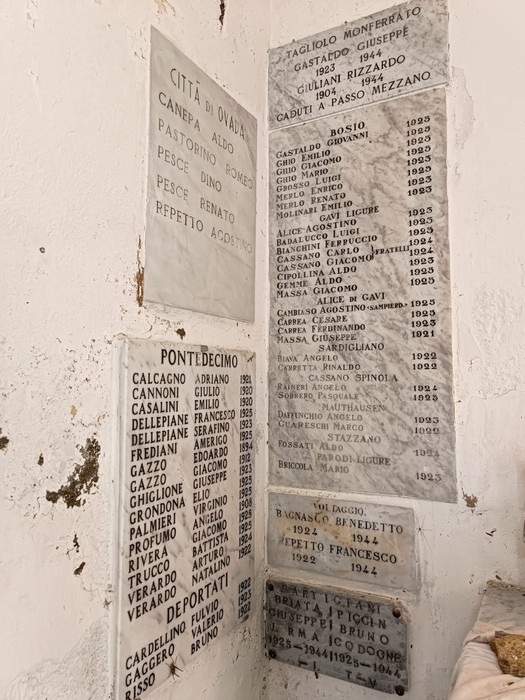 CITTÀ DI OVADA
CANEPA ALDO
PASTORINO ROMEO
PESCE DINO
PESCE RENATO
REPETTO AGOSTINO
TAGLIOLO MONFERRATO
GASTALDO GIUSEPPE
1923 1944
GIULIANI RIZZARDO
1904 1944
CADUTI A PASSO MEZZANO
BOSIO
GASTALDO GIOVANNI 1925
GHIO EMILIO 1925
GHIO GIACOMO 1925
GHIO MARIO 1925
GROSSO LUIGI 1925
MERLO ENRICO 1925
MERLO RENATO 1925
MOLINARI EMILIO 1923
GAVI LIGURE
ALICE AGOSTINO 1923
BADALUCCO LUIGI 1925
BIANCHINI FERRUCCIO 1923
CASSANO CARLO 1924
CASSANO GIACOMO FRATELLI 1924
CIPOLLINA ALDO 1923
GEMME ALDO 1925
MASSA GIACOMO 1925
ALICE DI GAVI
CAMBIASO AGOSTINO (SAMPIERD.) 1925
CARREA CESARE 1925
CARREA FERDINANDO 1925
MASSA GIUSEPPE 1921
SARDIGLIANO
BIAVA ANGELO 1922
CARRETTA RINALDO 1922
CASSANO SPINOLA
RAINERI ANGELO 1924
SOBRERO PASQUALE 1925
MAUTHAUSEN
DAFFUNCHIO ANGELO 1923
GUARESCHI MARCO 1922
STAZZANO
FOSSATI ALDO 1924
PARODI LIGURE
BRICCOLA MARIO 1923
PONTEDECIMO
CALCAGNO ADRIANO 1921
CANNONI GIULIO 1920
CASALINI EMILIO 1920
DELLEPIANE FRANCESCO 1925
DELLEPIANE SERAFINO 1923
FREDIANI AMERIGO 1925
GAZZO EDOARDO 1894
GAZZO GIACOMO 1912
GHIGLIONE GIUSEPPE 1923
GRONDONA ELIO 1925
PALMIERI VIRGINIO 1908
PROFUMO ANGELO 1925
RIVERA GIACOMO 1925
TRUCCO BATTISTA 1924
VERARDO ARTURO 1922
VERARDO NATALINO
DEPORTATI
CARDELLINO FULVIO 1922
GAGGERO VALERIO 1923
RISSO BRUNO 1922
VOLTAGGIO
BAGNASCO BENEDETTO
1924 1944
REPETTO FRANCESCO
1922 1944
PARTIGIANI
BRIATA PICCIN
GIUSEPPE BRUNO
IRMA
1925-1944 1925-1944